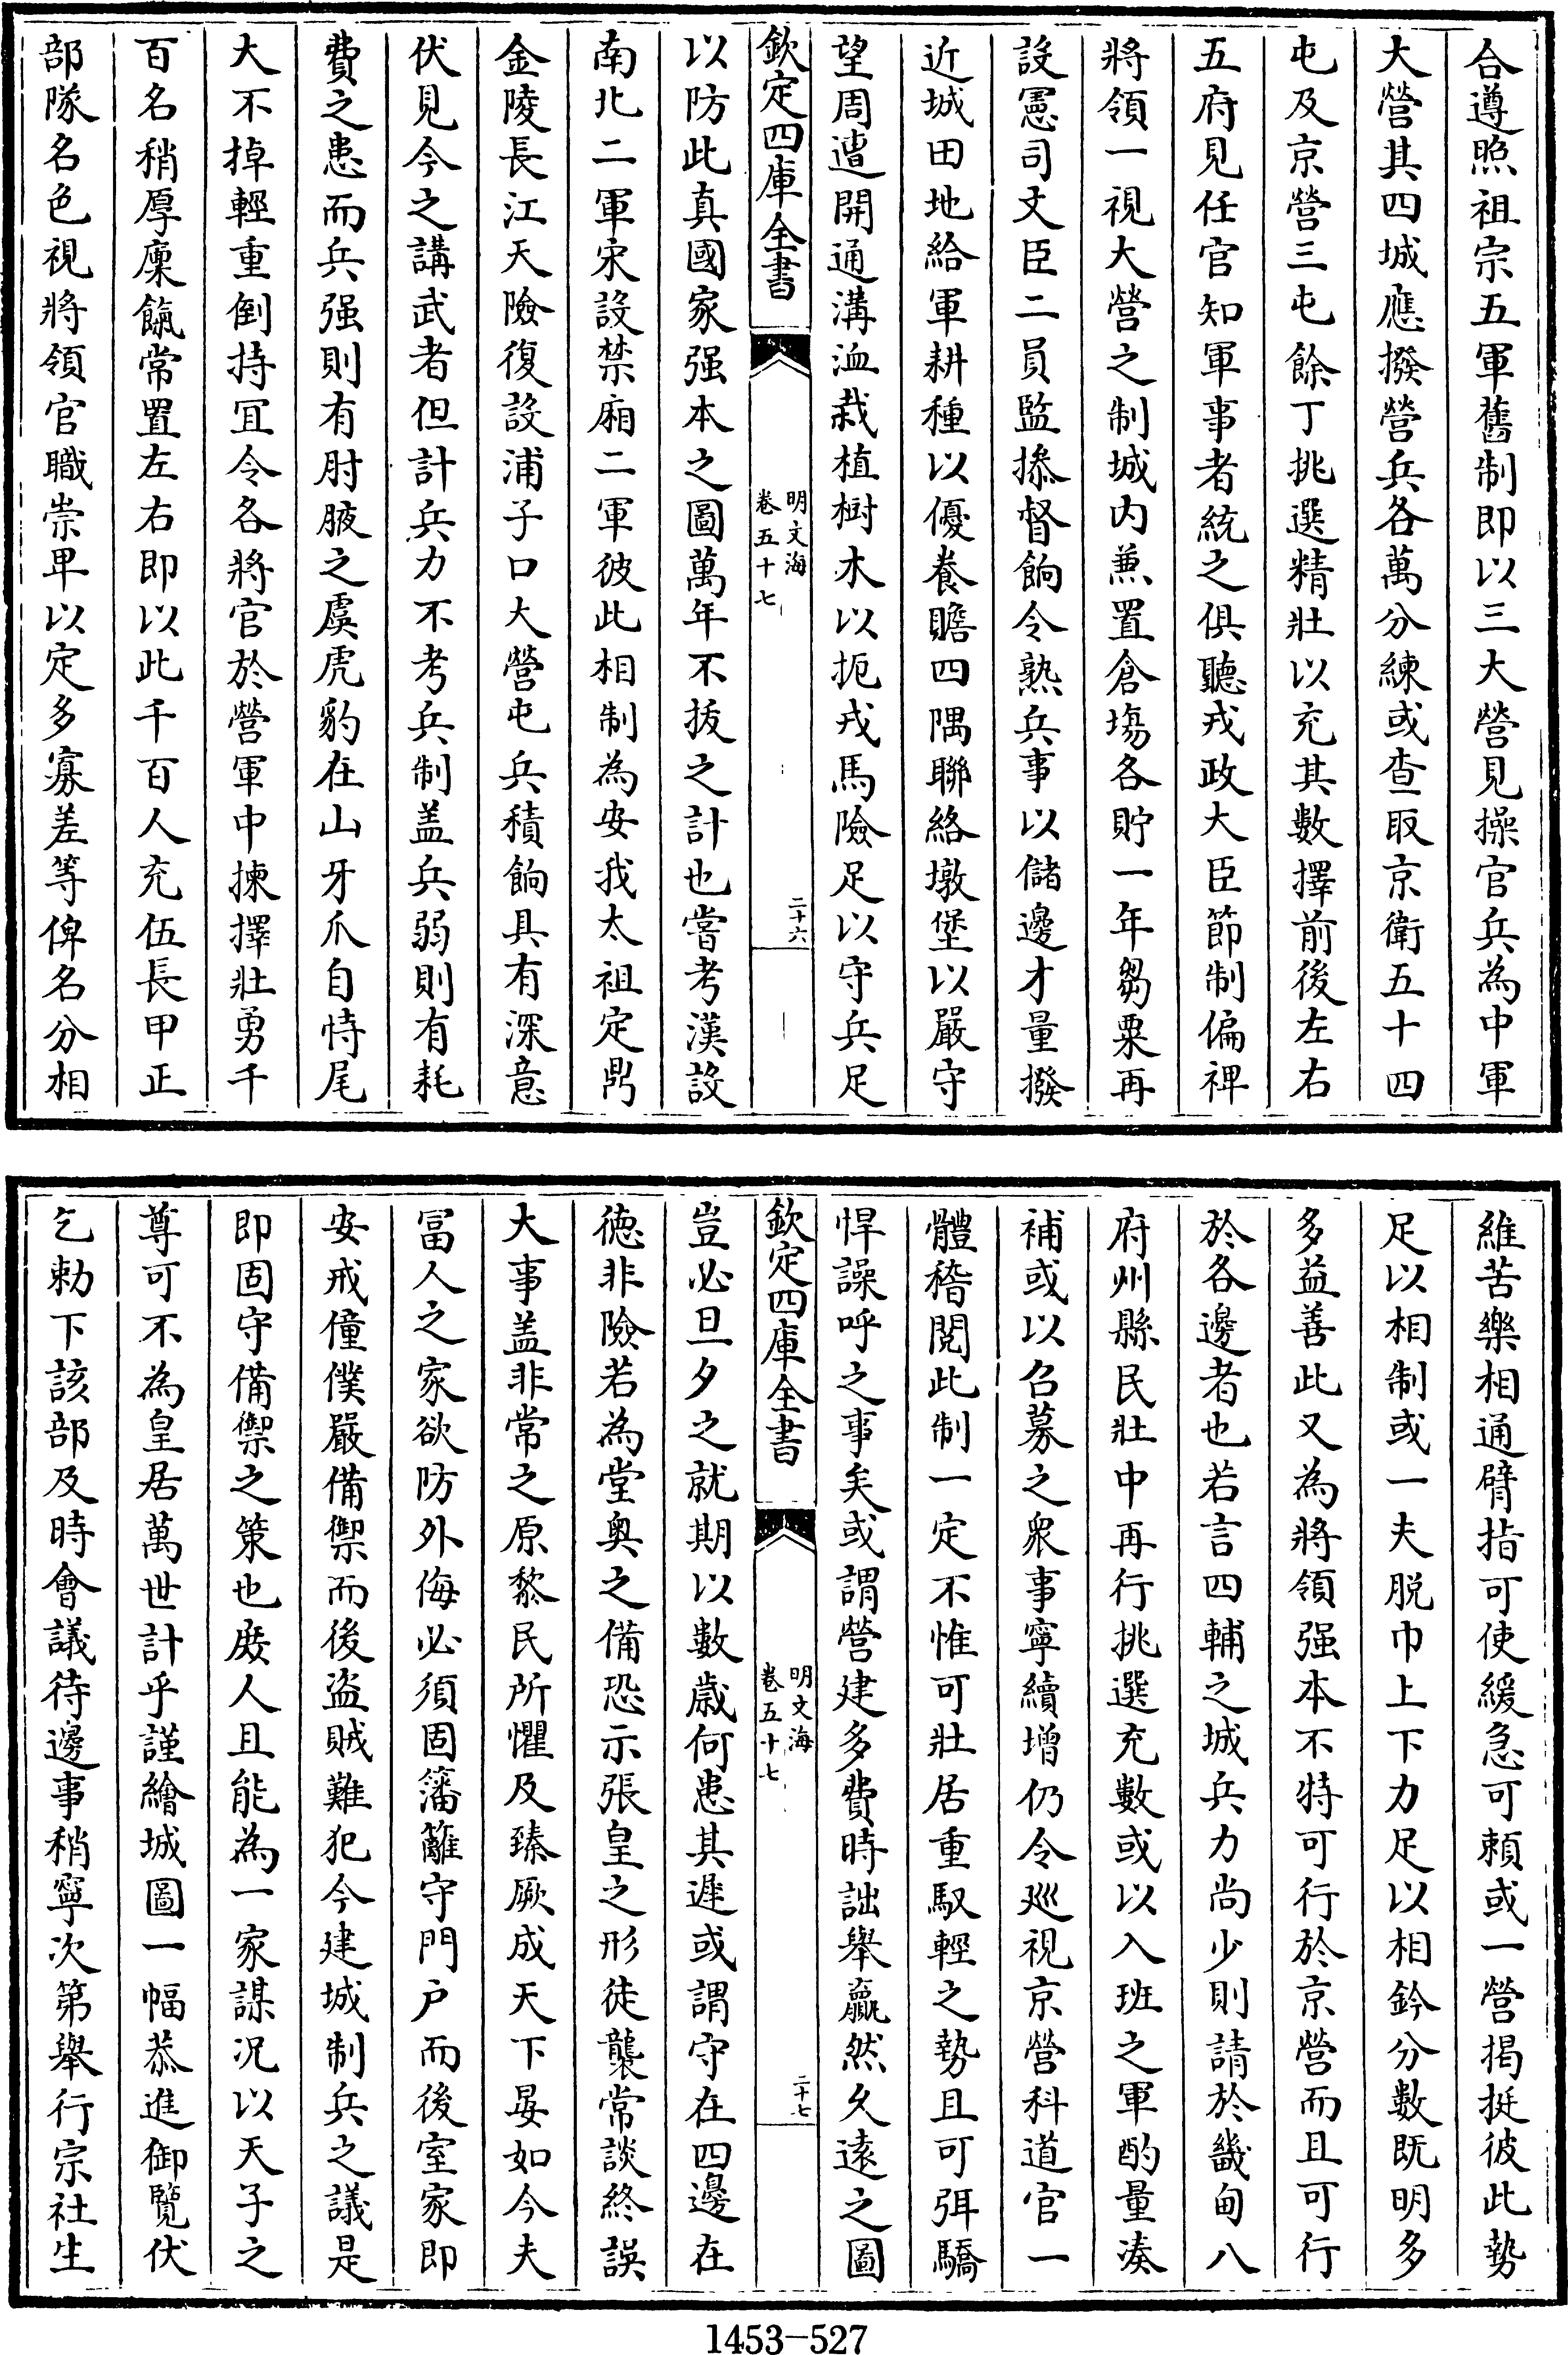 合遵照祖宗五軍舊制即以三大營見操官兵為中軍
大營其四城應撥營兵各萬分練或查取京衛五十四
屯及京營三屯餘丁挑選精壯以充其數擇前後左右
五府見任官知軍事者統之俱聽戎政大臣節制偏裨
將領一視大營之制城内兼置倉塲各貯一年芻粟再
設憲司文臣二員監㕘督餉令熟兵事以儲邊才量撥
近城田地給軍耕種以優養贍四隅聯絡墩堡以嚴守
望周遭開通溝洫栽植樹木以扼戎馬險足以守兵足
欽定四庫全書
明文海
卷五十七
二十六
以防此真國家强本之圖萬年不拔之計也嘗考漢設
南北二軍宋設禁廂二軍彼此相制為安我太祖定鼎
金陵長江天險復設浦子口大營屯兵積餉具有深意
伏見今之講武者但計兵力不考兵制盖兵弱則有耗
費之患而兵强則有肘腋之虞虎豹在山牙爪自恃尾
大不掉輕重倒持冝令各將官於營軍中揀擇壯勇千
百名稍厚廩餼常置左右即以此千百人充伍長甲正
部隊名色視將領官職崇卑以定多寡差等俾名分相
維苦樂相通臂指可使緩急可頼或一營掲挺彼此勢
足以相制或一夫脱巾上下力足以相鈐分數既明多
多益善此又為將領强本不特可行於京營而且可行
於各邊者也若言四輔之城兵力尚少則請於畿甸八
府州縣民壯中再行挑選充數或以入班之軍酌量湊
補或以召募之衆事寧續增仍令廵視京營科道官一
體稽閱此制一定不惟可壯居重馭輕之勢且可弭驕
悍譟呼之事矣或謂營建多費時詘舉羸然久逺之圖
欽定四庫全書
明文海
卷五十七
二十七
豈必旦夕之就期以數嵗何患其遲或謂守在四邊在
徳非險若為堂奥之備恐示張皇之形徒襲常談終誤
大事盖非常之原黎民所懼及臻厥成天下晏如今夫
冨人之家欲防外侮必須固籓籬守門户而後室家即
安戒僮僕嚴備禦而後盜賊難犯今建城制兵之議是
即固守備禦之策也庻人且能為一家謀况以天子之
尊可不為皇居萬世計乎謹繪城圖一幅恭進御覽伏
乞勅下該部及時會議待邊事稍寧次第舉行宗社生
1453-527